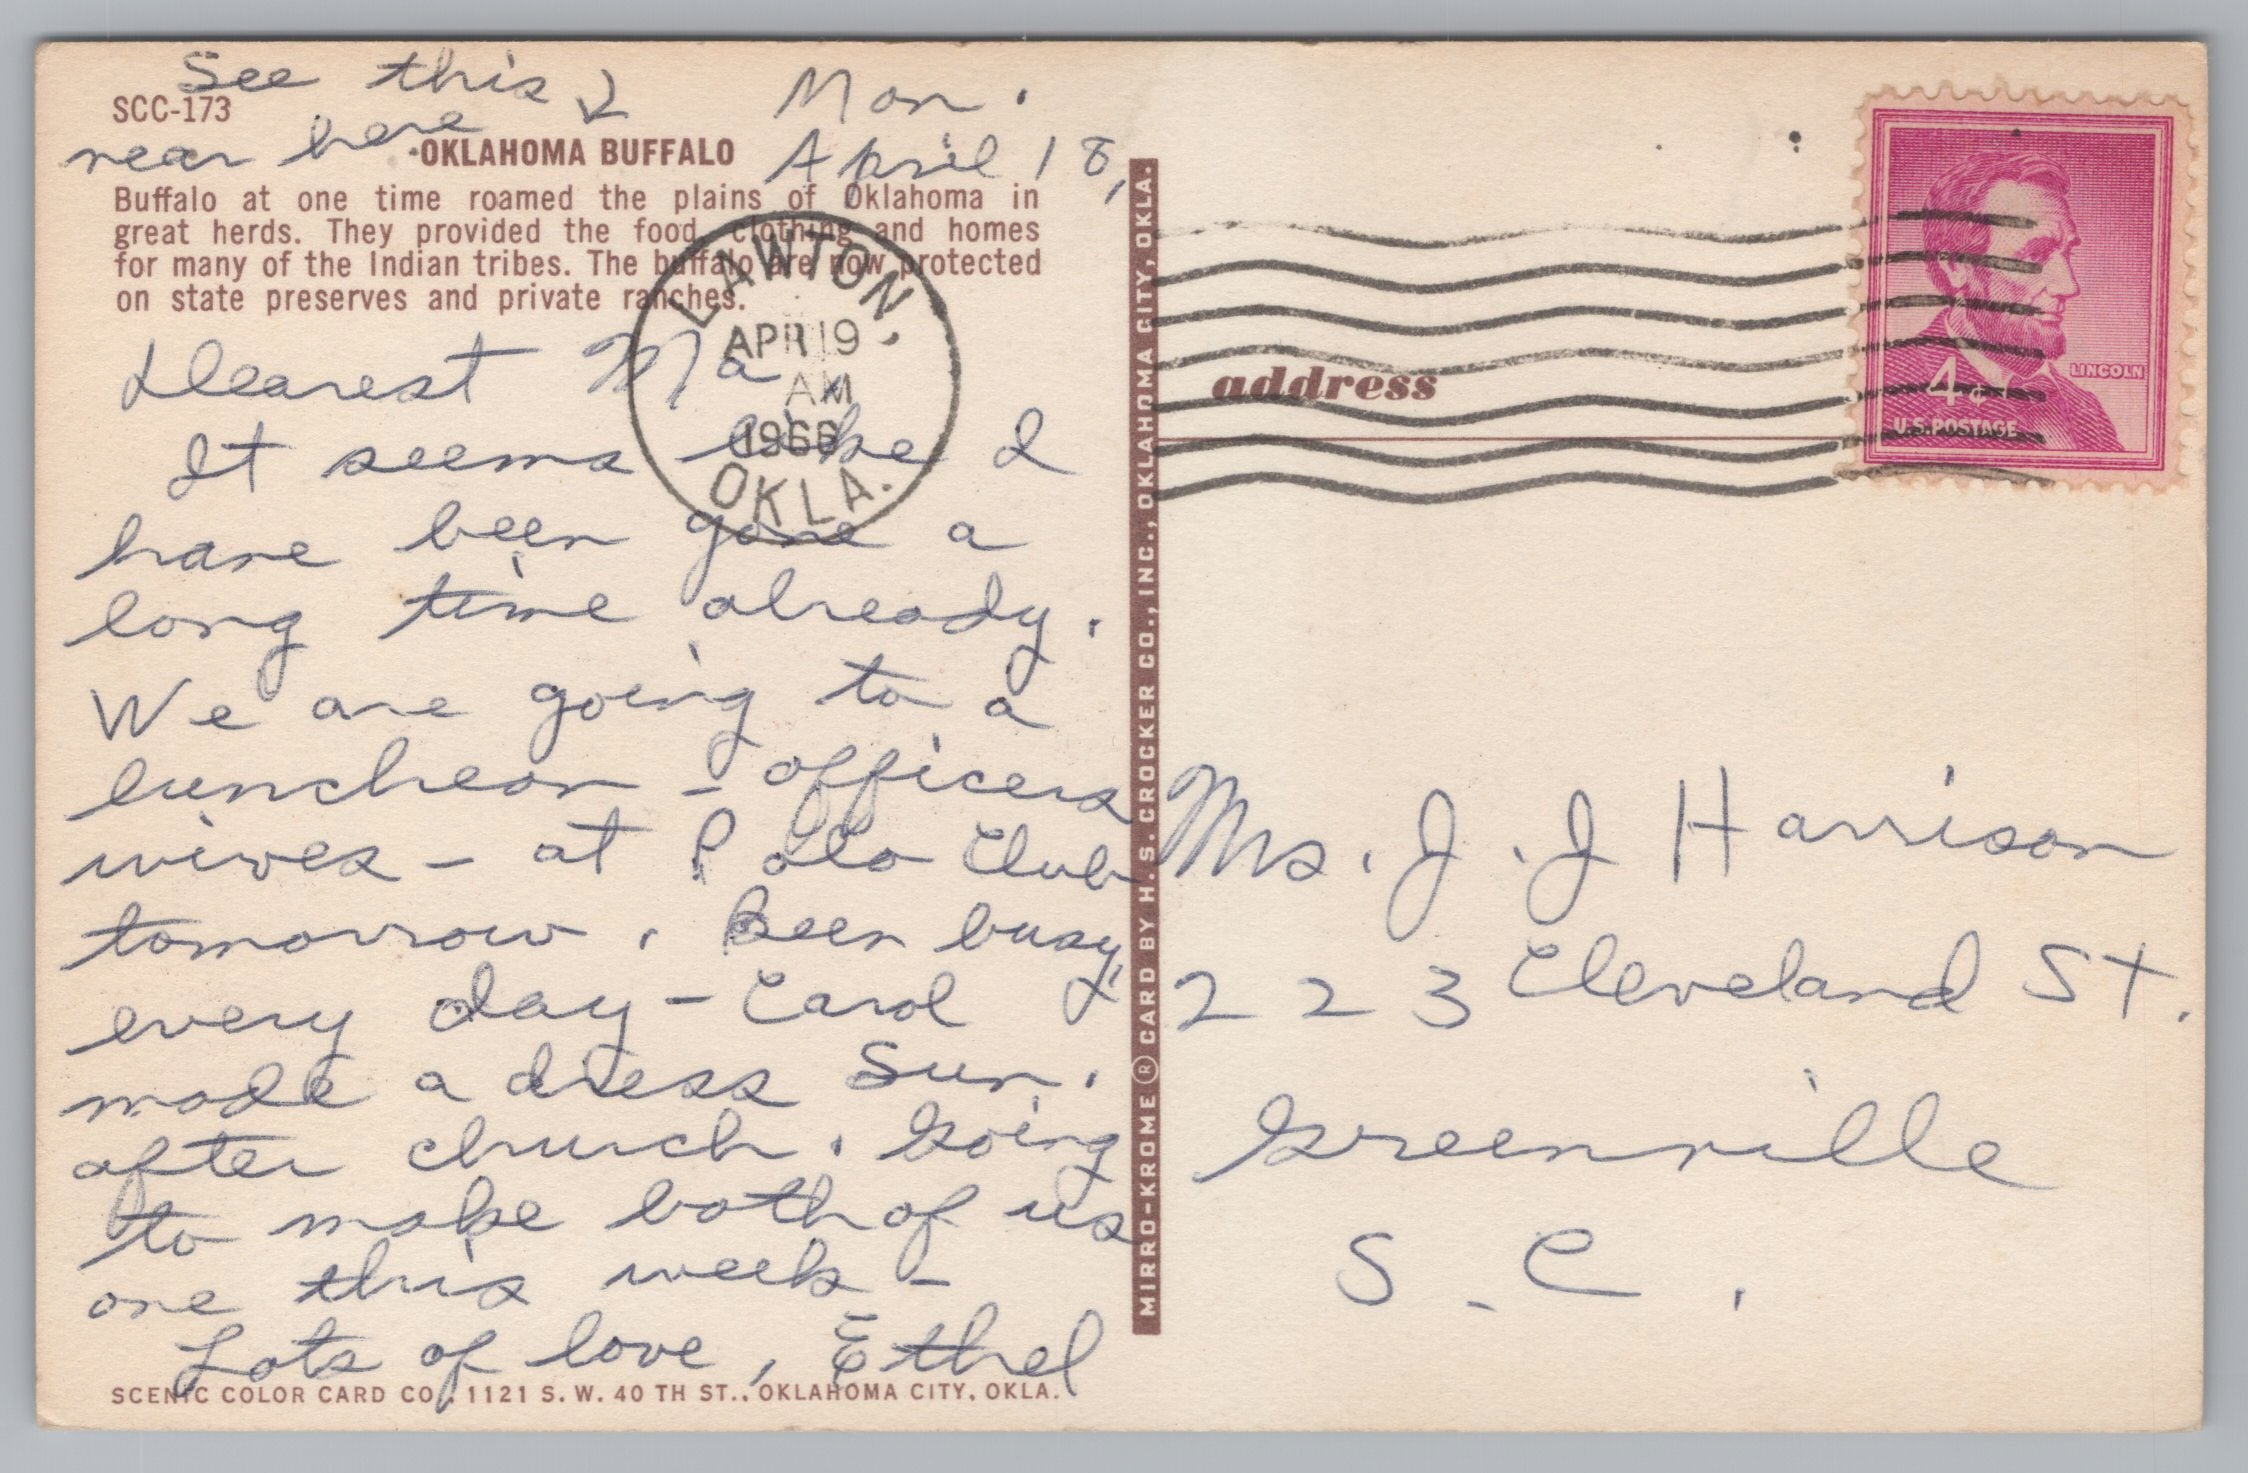 See this
near here
Mon.
April 18,
SCC-173
OKLAHOMA BUFFALO
Buffalo at one time roamed the plains of Oklahoma in
great herds. They provided the food, clothing and homes
for many of the Indian tribes. The buffalo are now protected
on state preserves and private ranches.
LAWTON,
APR 19
AM
1966
OKLA.
Dearest Ma,
It seems like I
have been gone a
long time already.
We are going to a
luncheon - officers
wives - at Polo Club
tomorrow. Been busy,
every day - Carol
made a dress Sun.
after church. Going
to make both of us
one this week -
Lots of love, Ethel
SCENIC COLOR CARD CO., 1121 S. W. 40 TH ST., OKLAHOMA CITY, OKLA.
MIRRO-KROME ® CARD BY H. S. CROCKER CO., INC., OKLAHOMA CITY, OKLA.
LINCOLN
4¢
U.S. POSTAGE
address
Mrs. J. J Harrison
223 Cleveland St.
Greenville
S. C.